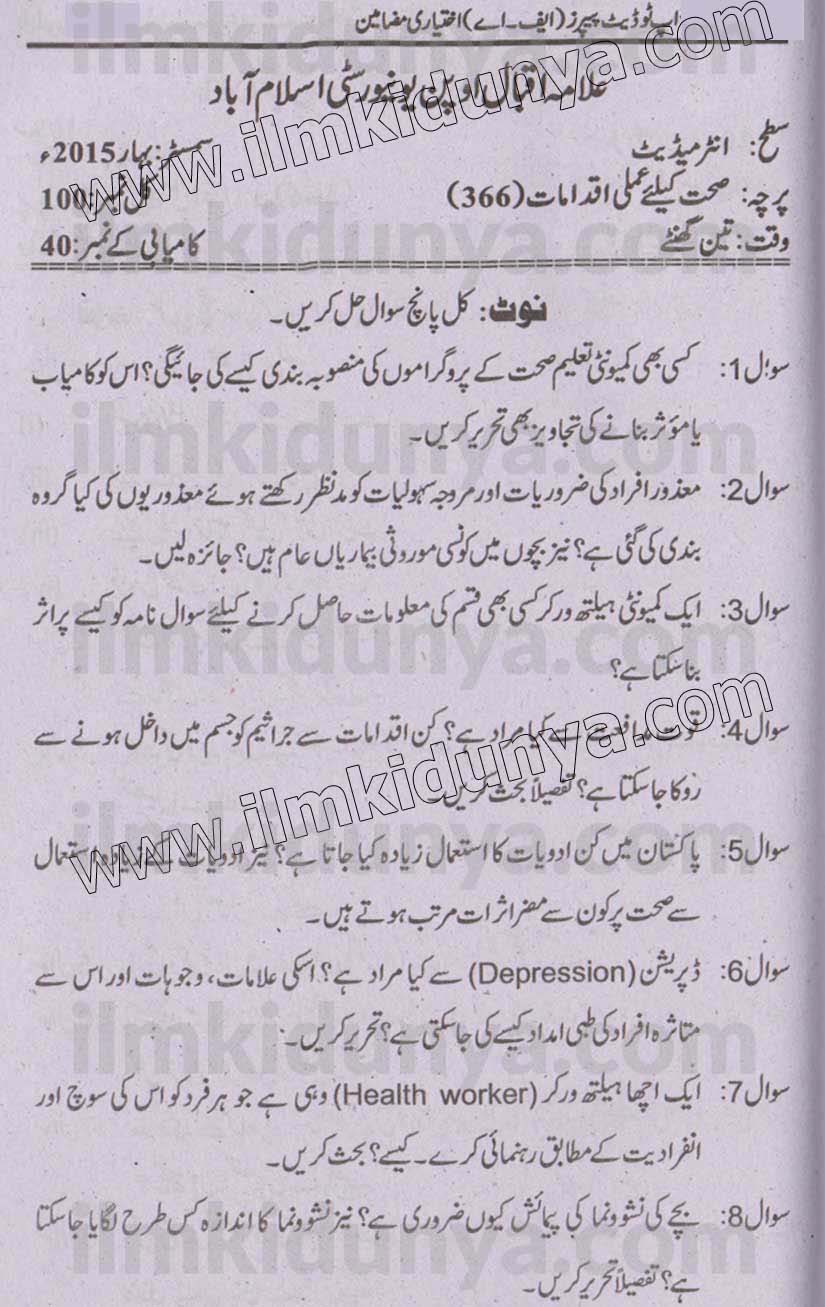 اپ ٹو ڈیٹ پیپرز (ایف۔اے) اختیاری مضامین
علامہ اقبال اوپن یونیورسٹی اسلام آباد
سطح: انٹرمیڈیٹ سمسٹر: بہار 2015ء
پرچہ: صحت کیلئے عملی اقدامات (366) کل نمبر: 100
وقت: تین گھنٹے کامیابی کے نمبر: 40
نوٹ: کل پانچ سوال حل کریں۔
سوال 1: کسی بھی کمیونٹی تعلیم صحت کے پروگراموں کی منصوبہ بندی کیسے کی جائیگی؟ اس کو کامیاب
یا مؤثر بنانے کی تجاویز بھی تحریر کریں۔
سوال 2: معذور افراد کی ضروریات اور مروجہ سہولیات کو مدنظر رکھتے ہوئے معذوریوں کی کیا گروہ
بندی کی گئی ہے؟ نیز بچوں میں کونسی موروثی بیماریاں عام ہیں؟ جائزہ لیں۔
سوال 3: ایک کمیونٹی ہیلتھ ورکر کسی بھی قسم کی معلومات حاصل کرنے کیلئے سوال نامہ کو کیسے پراثر
بنا سکتا ہے؟
سوال 4: قوت مدافعت سے کیا مراد ہے؟ کن اقدامات سے جراثیم کو جسم میں داخل ہونے سے
روکا جا سکتا ہے؟ تفصیلاً بحث کریں۔
سوال 5: پاکستان میں کن ادویات کا استعمال زیادہ کیا جاتا ہے؟ نیز ادویات کے زیادہ استعمال
سے صحت پر کون سے مضر اثرات مرتب ہوتے ہیں۔
سوال 6: ڈپریشن (Depression) سے کیا مراد ہے؟ اسکی علامات، وجوہات اور اس سے
متاثرہ افراد کی طبی امداد کیسے کی جا سکتی ہے؟ تحریر کریں۔
سوال 7: ایک اچھا ہیلتھ ورکر (Health worker) وہی ہے جو ہر فرد کو اس کی سوچ اور
انفرادیت کے مطابق رہنمائی کرے۔ کیسے؟ بحث کریں۔
سوال 8: بچے کی نشوونما کی پیمائش کیوں ضروری ہے؟ نیز نشوونما کا اندازہ کس طرح لگایا جا سکتا
ہے؟ تفصیلاً تحریر کریں۔
www.ilmkidunya.com
www.ilmkidunya.com
ilmkidunya.com
ilmkidunya.com
ilmkidunya.com
ilmkidunya.com
ilmkidunya.com
ilmkidunya.com